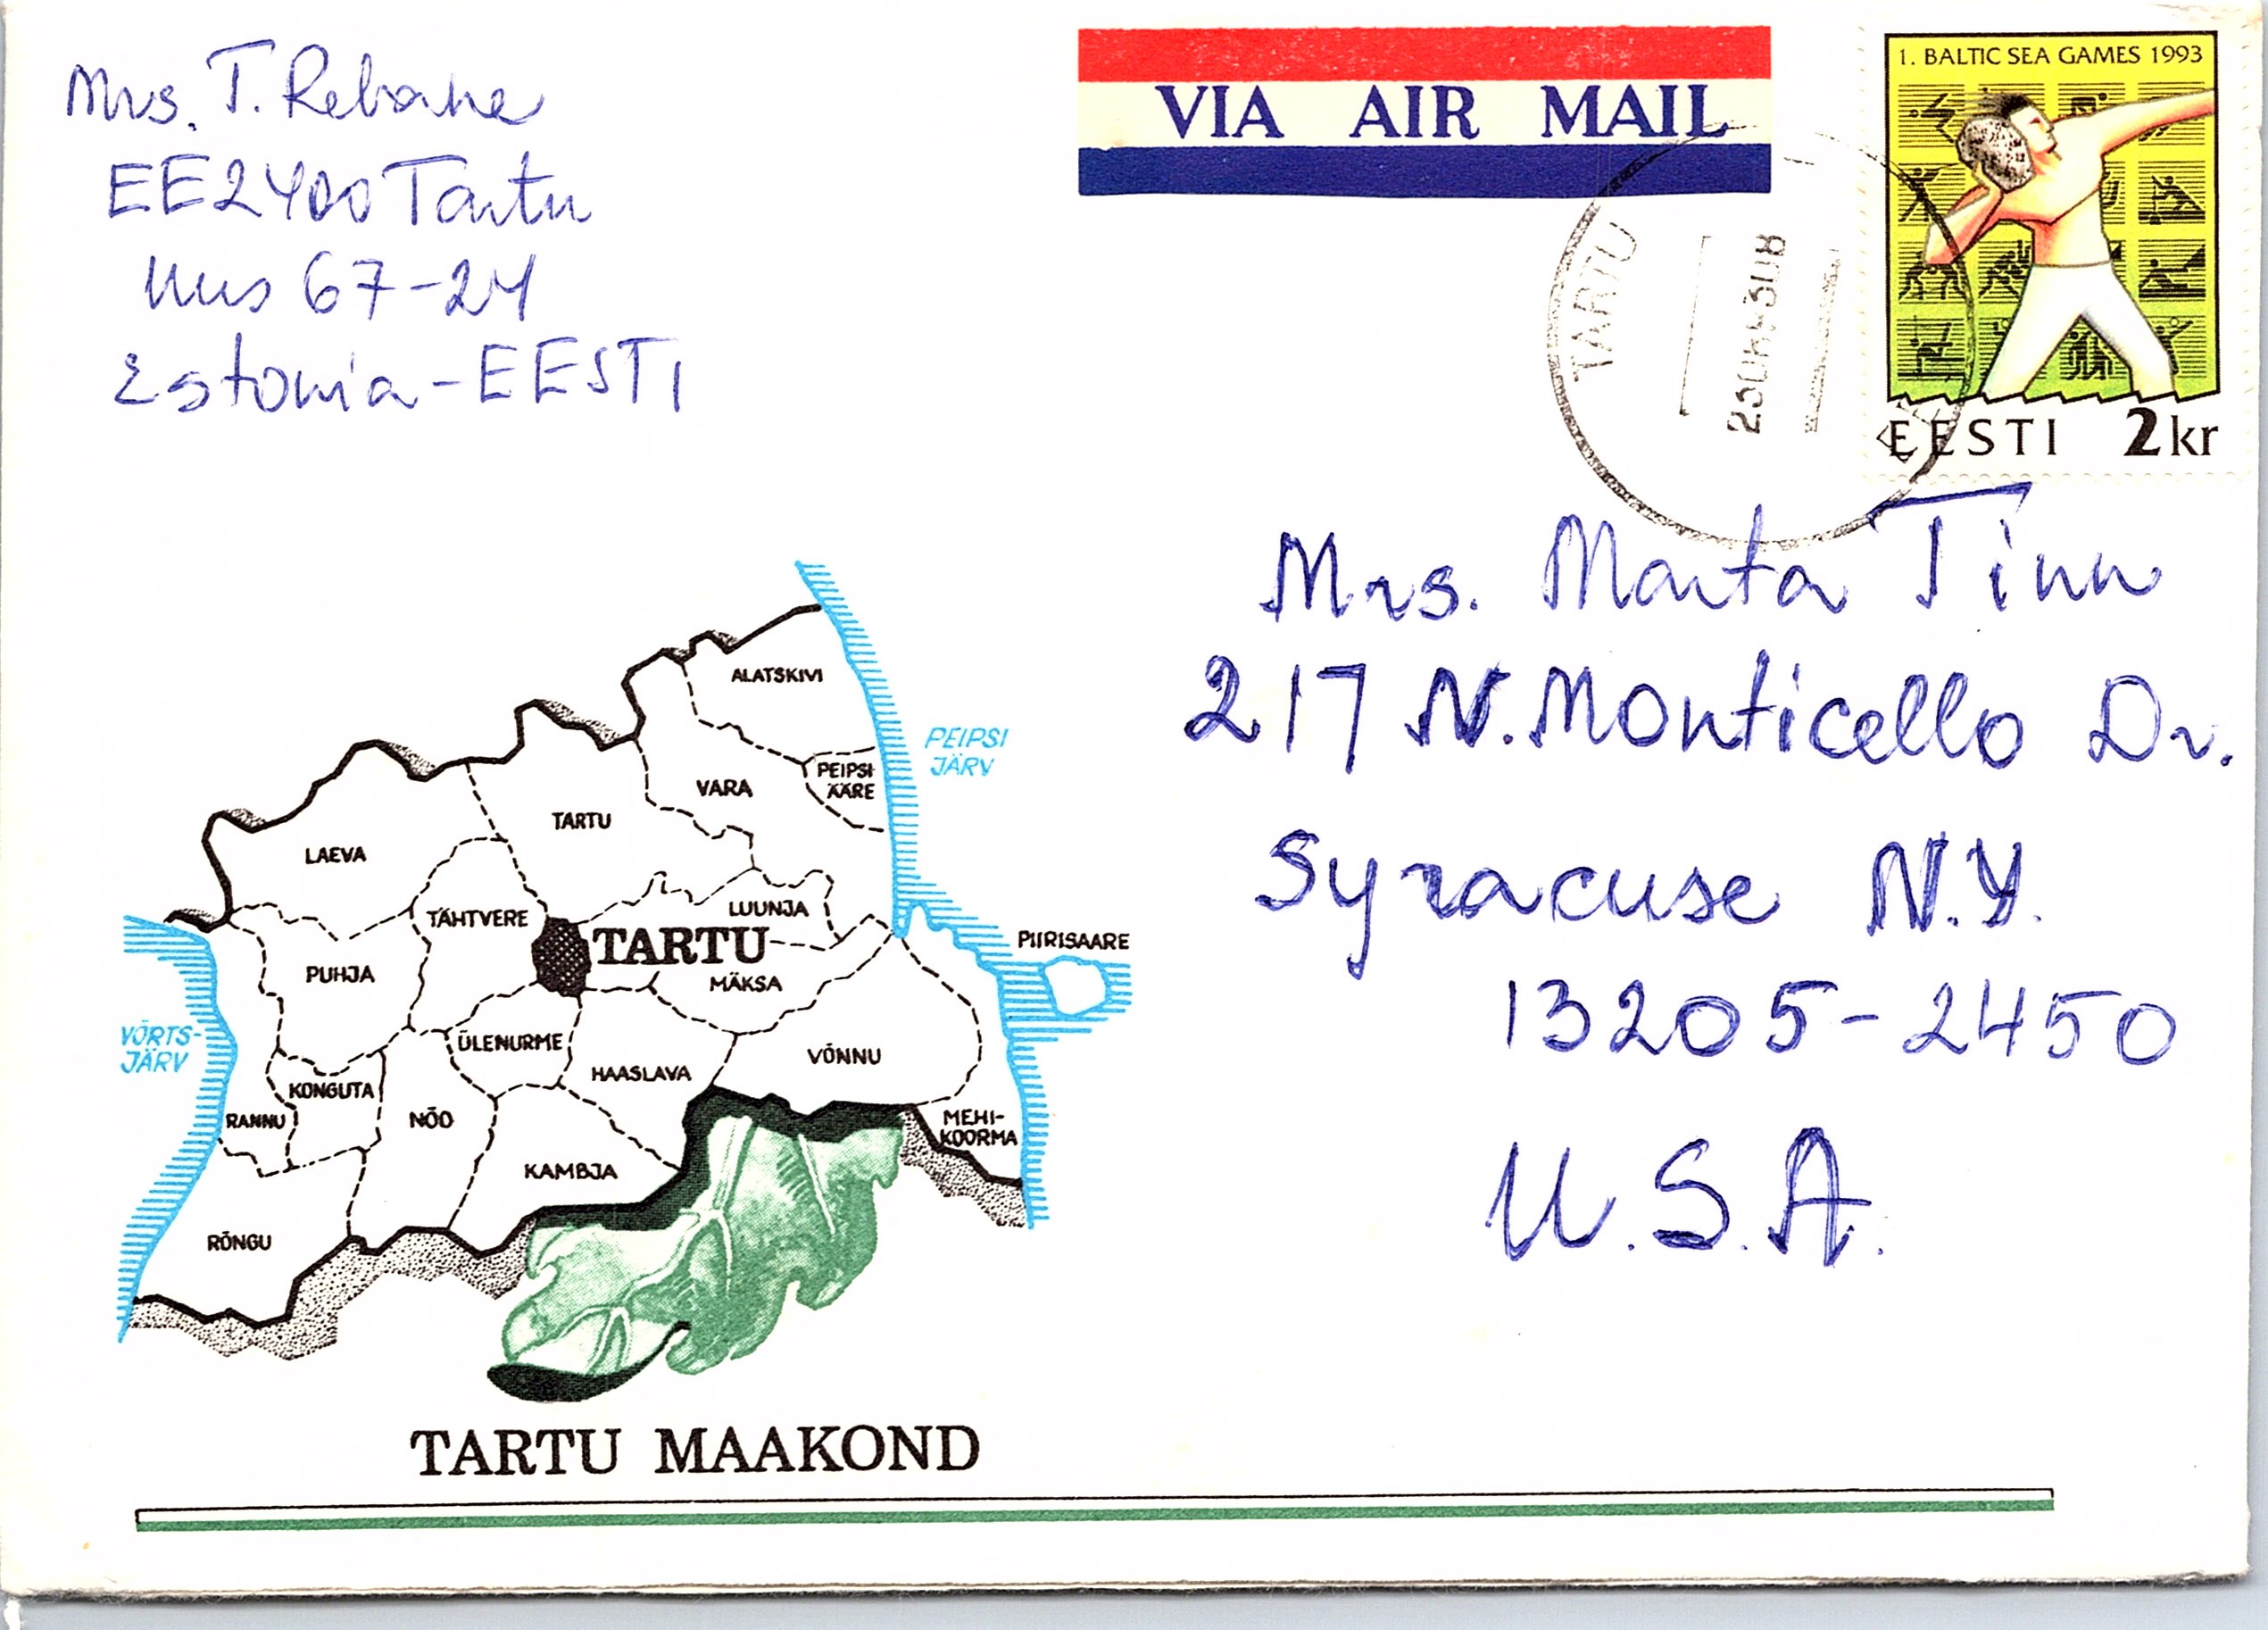 Mrs. T. Rebane
EE2400 Tartu
Uus 67-24
Estonia-EESTI
VIA AIR MAIL
TARTU
1. BALTIC SEA GAMES 1993
EESTI 2kr
Mrs. Marta Tinn
217 N. Monticello Dr.
Syracuse N.Y.
13205-2450
U.S.A.
ALATSKIVI
PEIPSI
JÄRV
PEIPSI-
ÄÄRE
VARA
TARTU
LAEVA
TÄHTVERE
LUUNJA
TARTU
PIIRISAARE
PUHJA
MÄKSA
VÕRTS-
JÄRV
ÜLENURME
HAASLAVA
VÕNNU
KONGUTA
RANNU
NÕO
MEHI-
KOORMA
KAMBJA
RÕNGU
TARTU MAAKOND